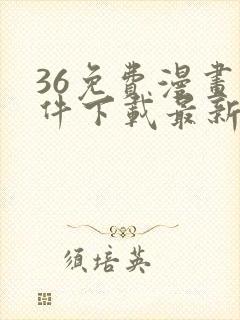 36免費漫畫
件下載最新
須培英